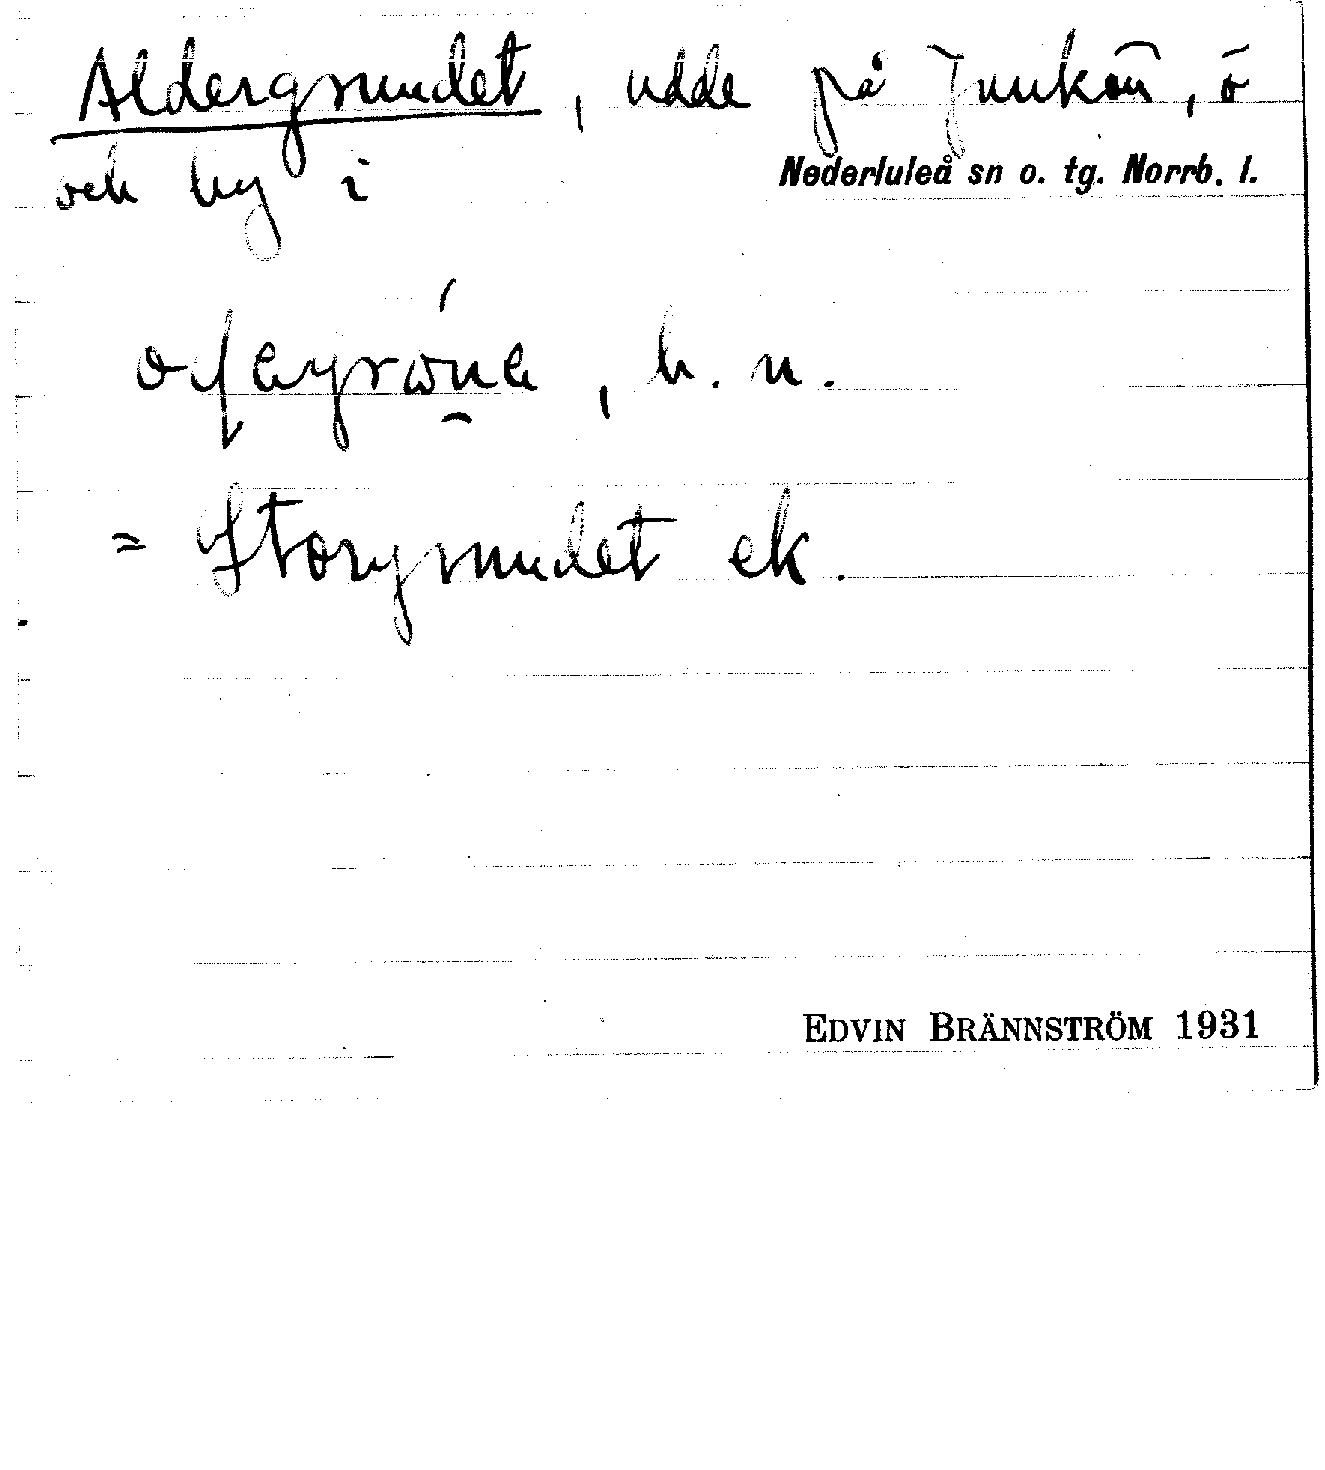 Aldergrundet, udde på Junkön, ö
och by i Nederluleå sn o. tg. Norrb. l.
, b. n.
= Storgrundet ek.
EDVIN BRÄNNSTRÖM 1931